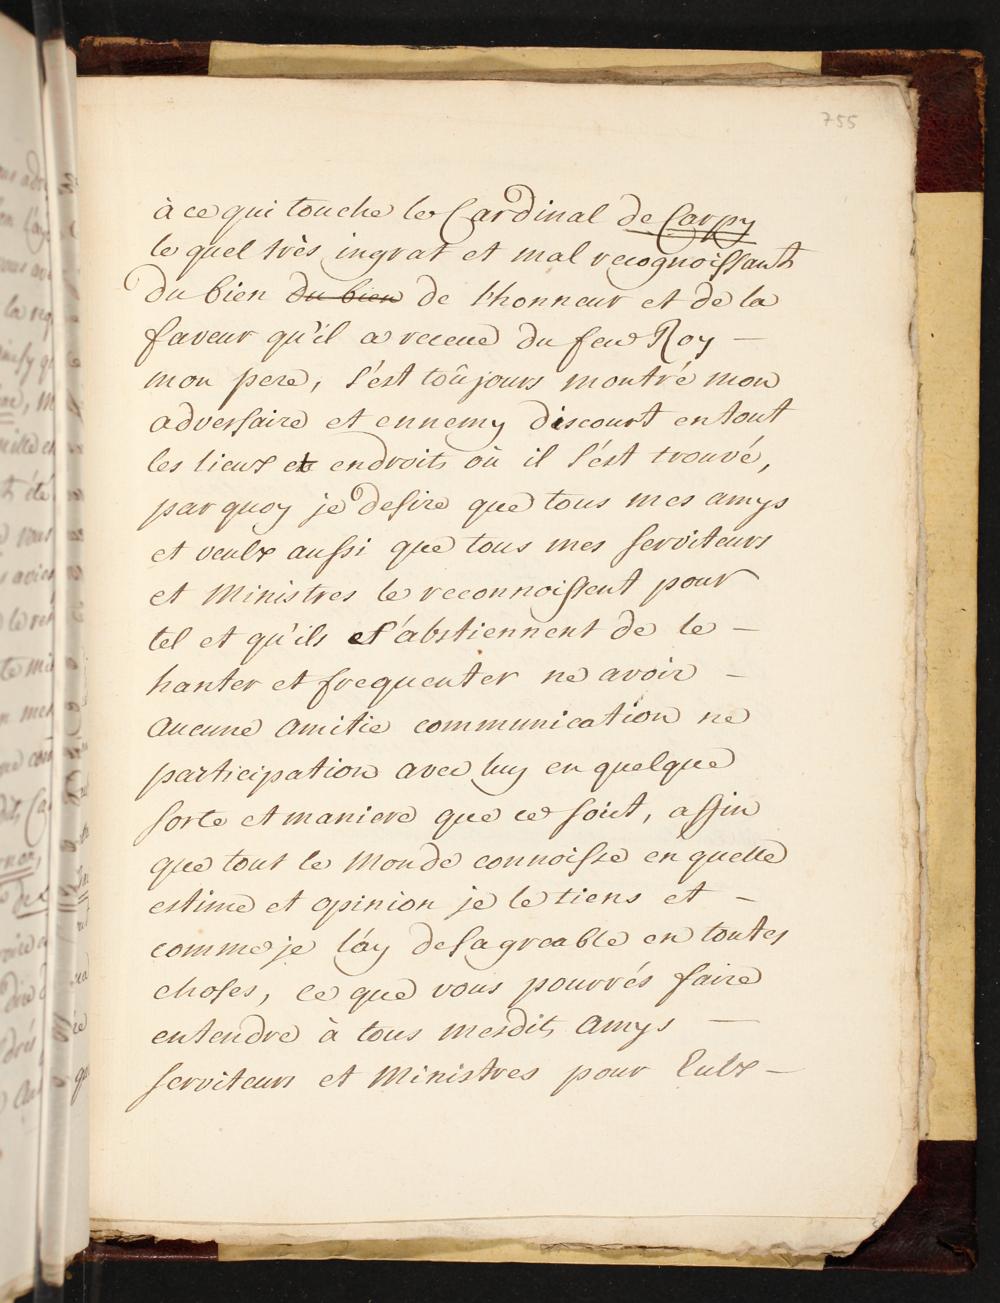 755
à ce qui touche le Cardinal de Carpy
le quel très ingrat et mal recognoissant
du bien du bien de l'honneur et de la
faveur qu'il a receue du feu Roy —
mon pere, s'est toûjours montré mon
adversaire et ennemy discourt en tout
les lieux et endroits où il s'est trouvé,
par quoy je desire que tous mes amys
et veulx aussi que tous mes serviteurs
et Ministres le reconnoissent pour
tel et qu'ils s'abstiennent de le —
hanter et frequenter ne avoir —
aucune amitie communication ne
participation avec luy en quelque
sorte et maniere que ce soit, affin
que tout le monde connoisse en quelle
estime et opinion je le tiens et —
comme je l'ay desagreable en toutes
choses, ce que vous pourrés faire
entendre à tous mesdits amys —
serviteurs et Ministres pour Eulx —